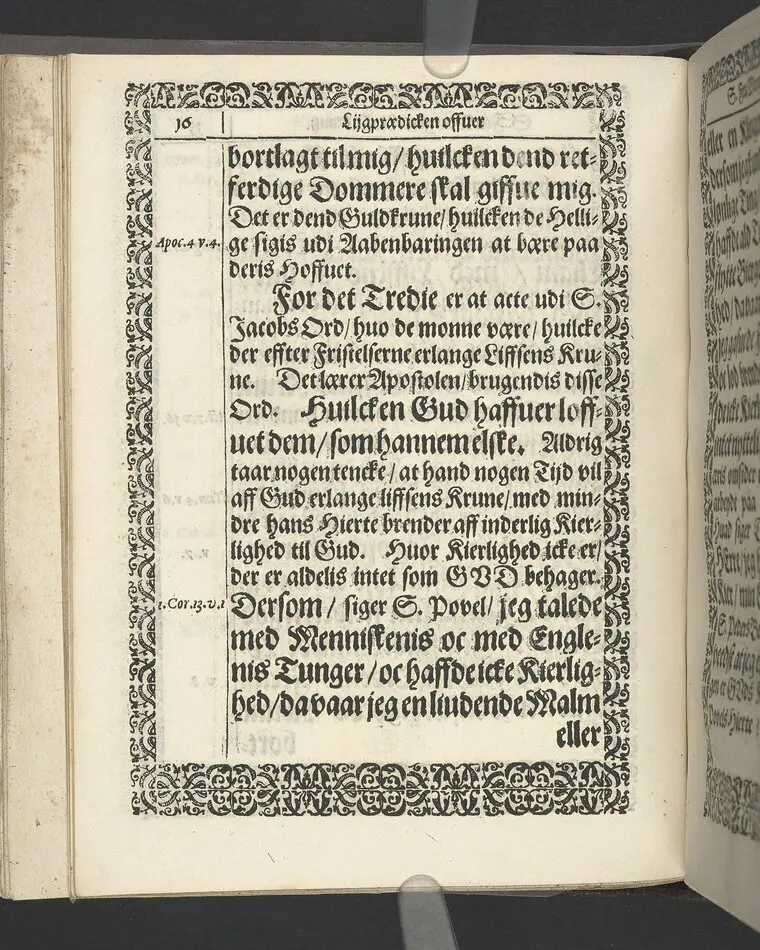 16
Lijgprædicken offuer
bortlagt til mig/ huilcken dend ret-
ferdige Dommere skal giffue mig.
Det er dend Guldkrune/ huilcken de Helli-
Apoc. 4 v. 4.
ge sigis udi Aabenbaringen at bære paa
deris Hoffuet.
For det Tredie er at acte udi S.
Jacobs Ord/ huo de monne være/ huilcke
der effter Fristelserne erlange Liffsens Kru-
ne. Det lærer Apostolen/ brugendis disse
Ord. Huilcken Gud haffuer loff-
uet dem/ som hannem elske. Aldrig
taar nogen tencke/ at hand nogen Tijd vil
aff Gud erlange liffsens Krune/ med min-
dre hans Hierte brender aff inderlig Kier-
lighed til Gud. Huor Kierlighed icke er/
der er aldelis intet som GVD behager.
1. Cor. 13. v. 1
Dersom/ siger S. Povel/ jeg talede
med Menniskenis oc med Engle-
nis Tunger/ oc haffde icke Kierlig-
hed/ da vaar jeg en liudende Malm
eller